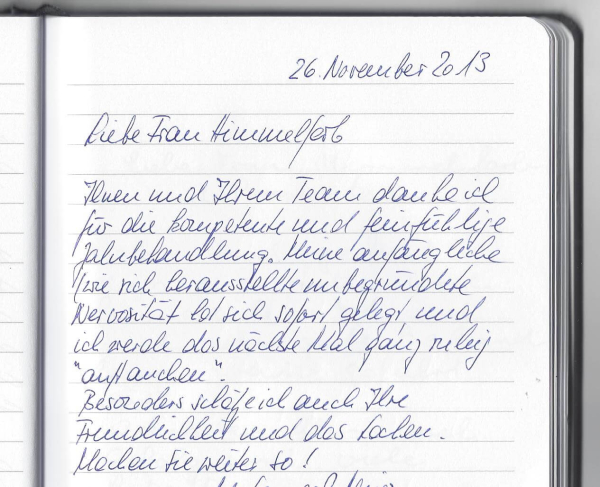 26. November 2013
Liebe Frau Himmelfarb
Ihnen und Ihrem Team danke ich
für die kompetente und feinfühlige
Zahnbehandlung. Meine anfängliche
(wie sich herausstellte unbegründete
Nervosität hat sich sofort gelegt und
ich werde das nächste Mal ganz ruhig
"auftauchen".
Besonders schätze ich auch Ihre
Freundlichkeit und das Lachen.
Machen Sie weiter so!